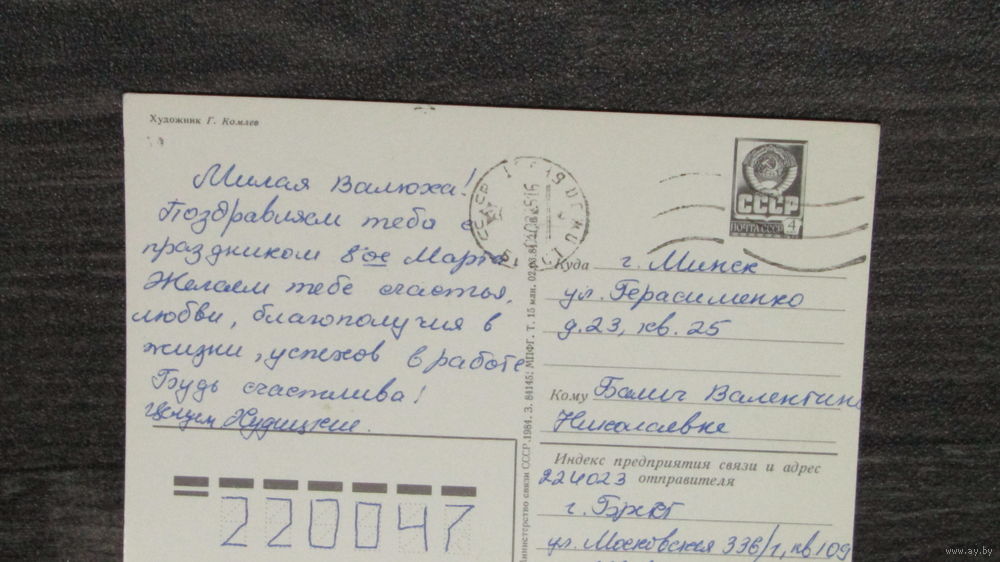 Художник Г. Комлев
Милая Валюха!
Поздравляем тебя с
праздником 8ое Марта
Желаем тебе счастья,
любви, благополучия в
жизни, успехов в работе
Будь счастлива!
Худицкие.
220047
Министерство связи СССР. 1984. З. 84145. МПФГ. Т. 15 млн. 02.03.84.
СССР
ПОЧТА СССР 4
Куда г. Минск
ул. Герасименко
д. 23, кв. 25
Кому Балич Валентине
Николаевне
Индекс предприятия связи и адрес
224023 отправителя
г. Брест
ул. Московская 336/1, кв 109
www.ay.by